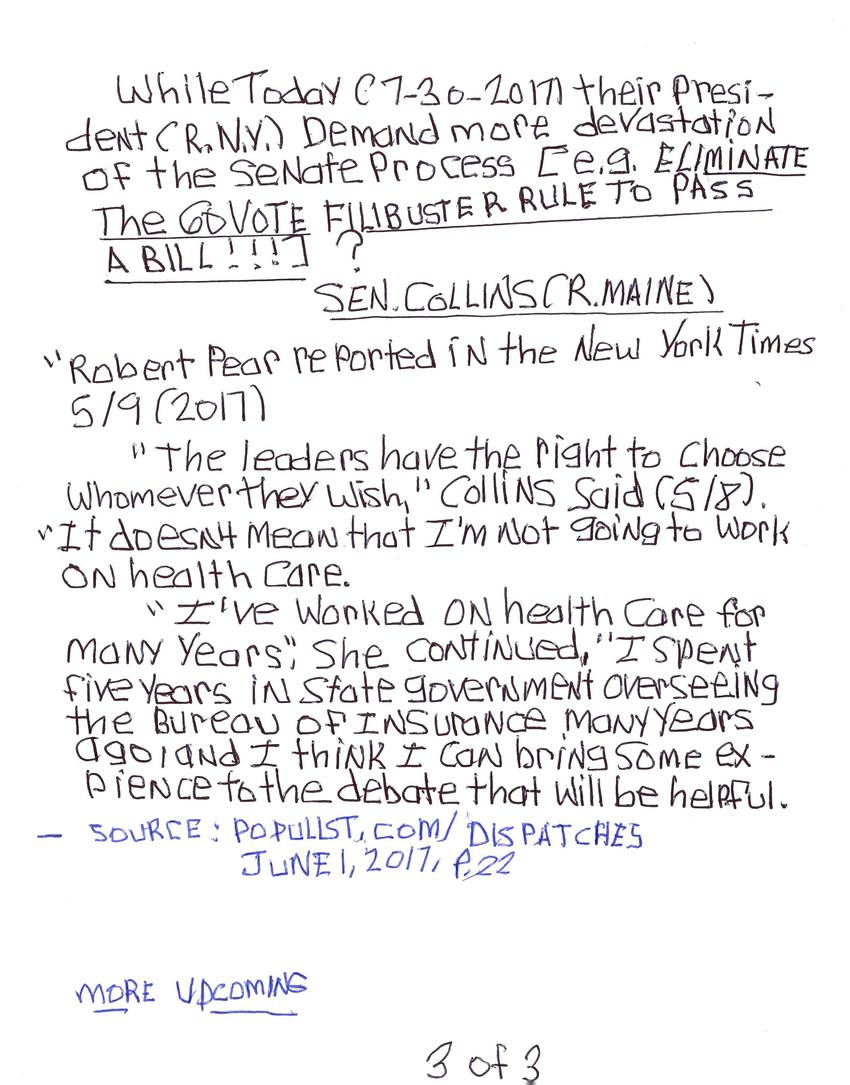 While Today (7-30-2017) their Presi-
dent (R.N.Y.) Demand more devastation
of the Senate Process [e.g. ELIMINATE
The 60 VOTE FILIBUSTER RULE TO PASS
A BILL!!!] ?
SEN. COLLINS (R. MAINE)
"Robert Pear reported in the New York Times
5/9 (2017)
"The leaders have the right to choose
whomever they wish," Collins Said (5/8).
"It doesn't mean that I'm not going to work
on health care.
"I've worked on health care for
many years", She continued, "I spent
five years in state government overseeing
the Bureau of Insurance many years
ago, and I think I can bring some ex-
pience to the debate that will be helpful.
- SOURCE: POPULIST.COM/DISPATCHES
JUNE 1, 2017, P.22
MORE UPCOMING
3 of 3